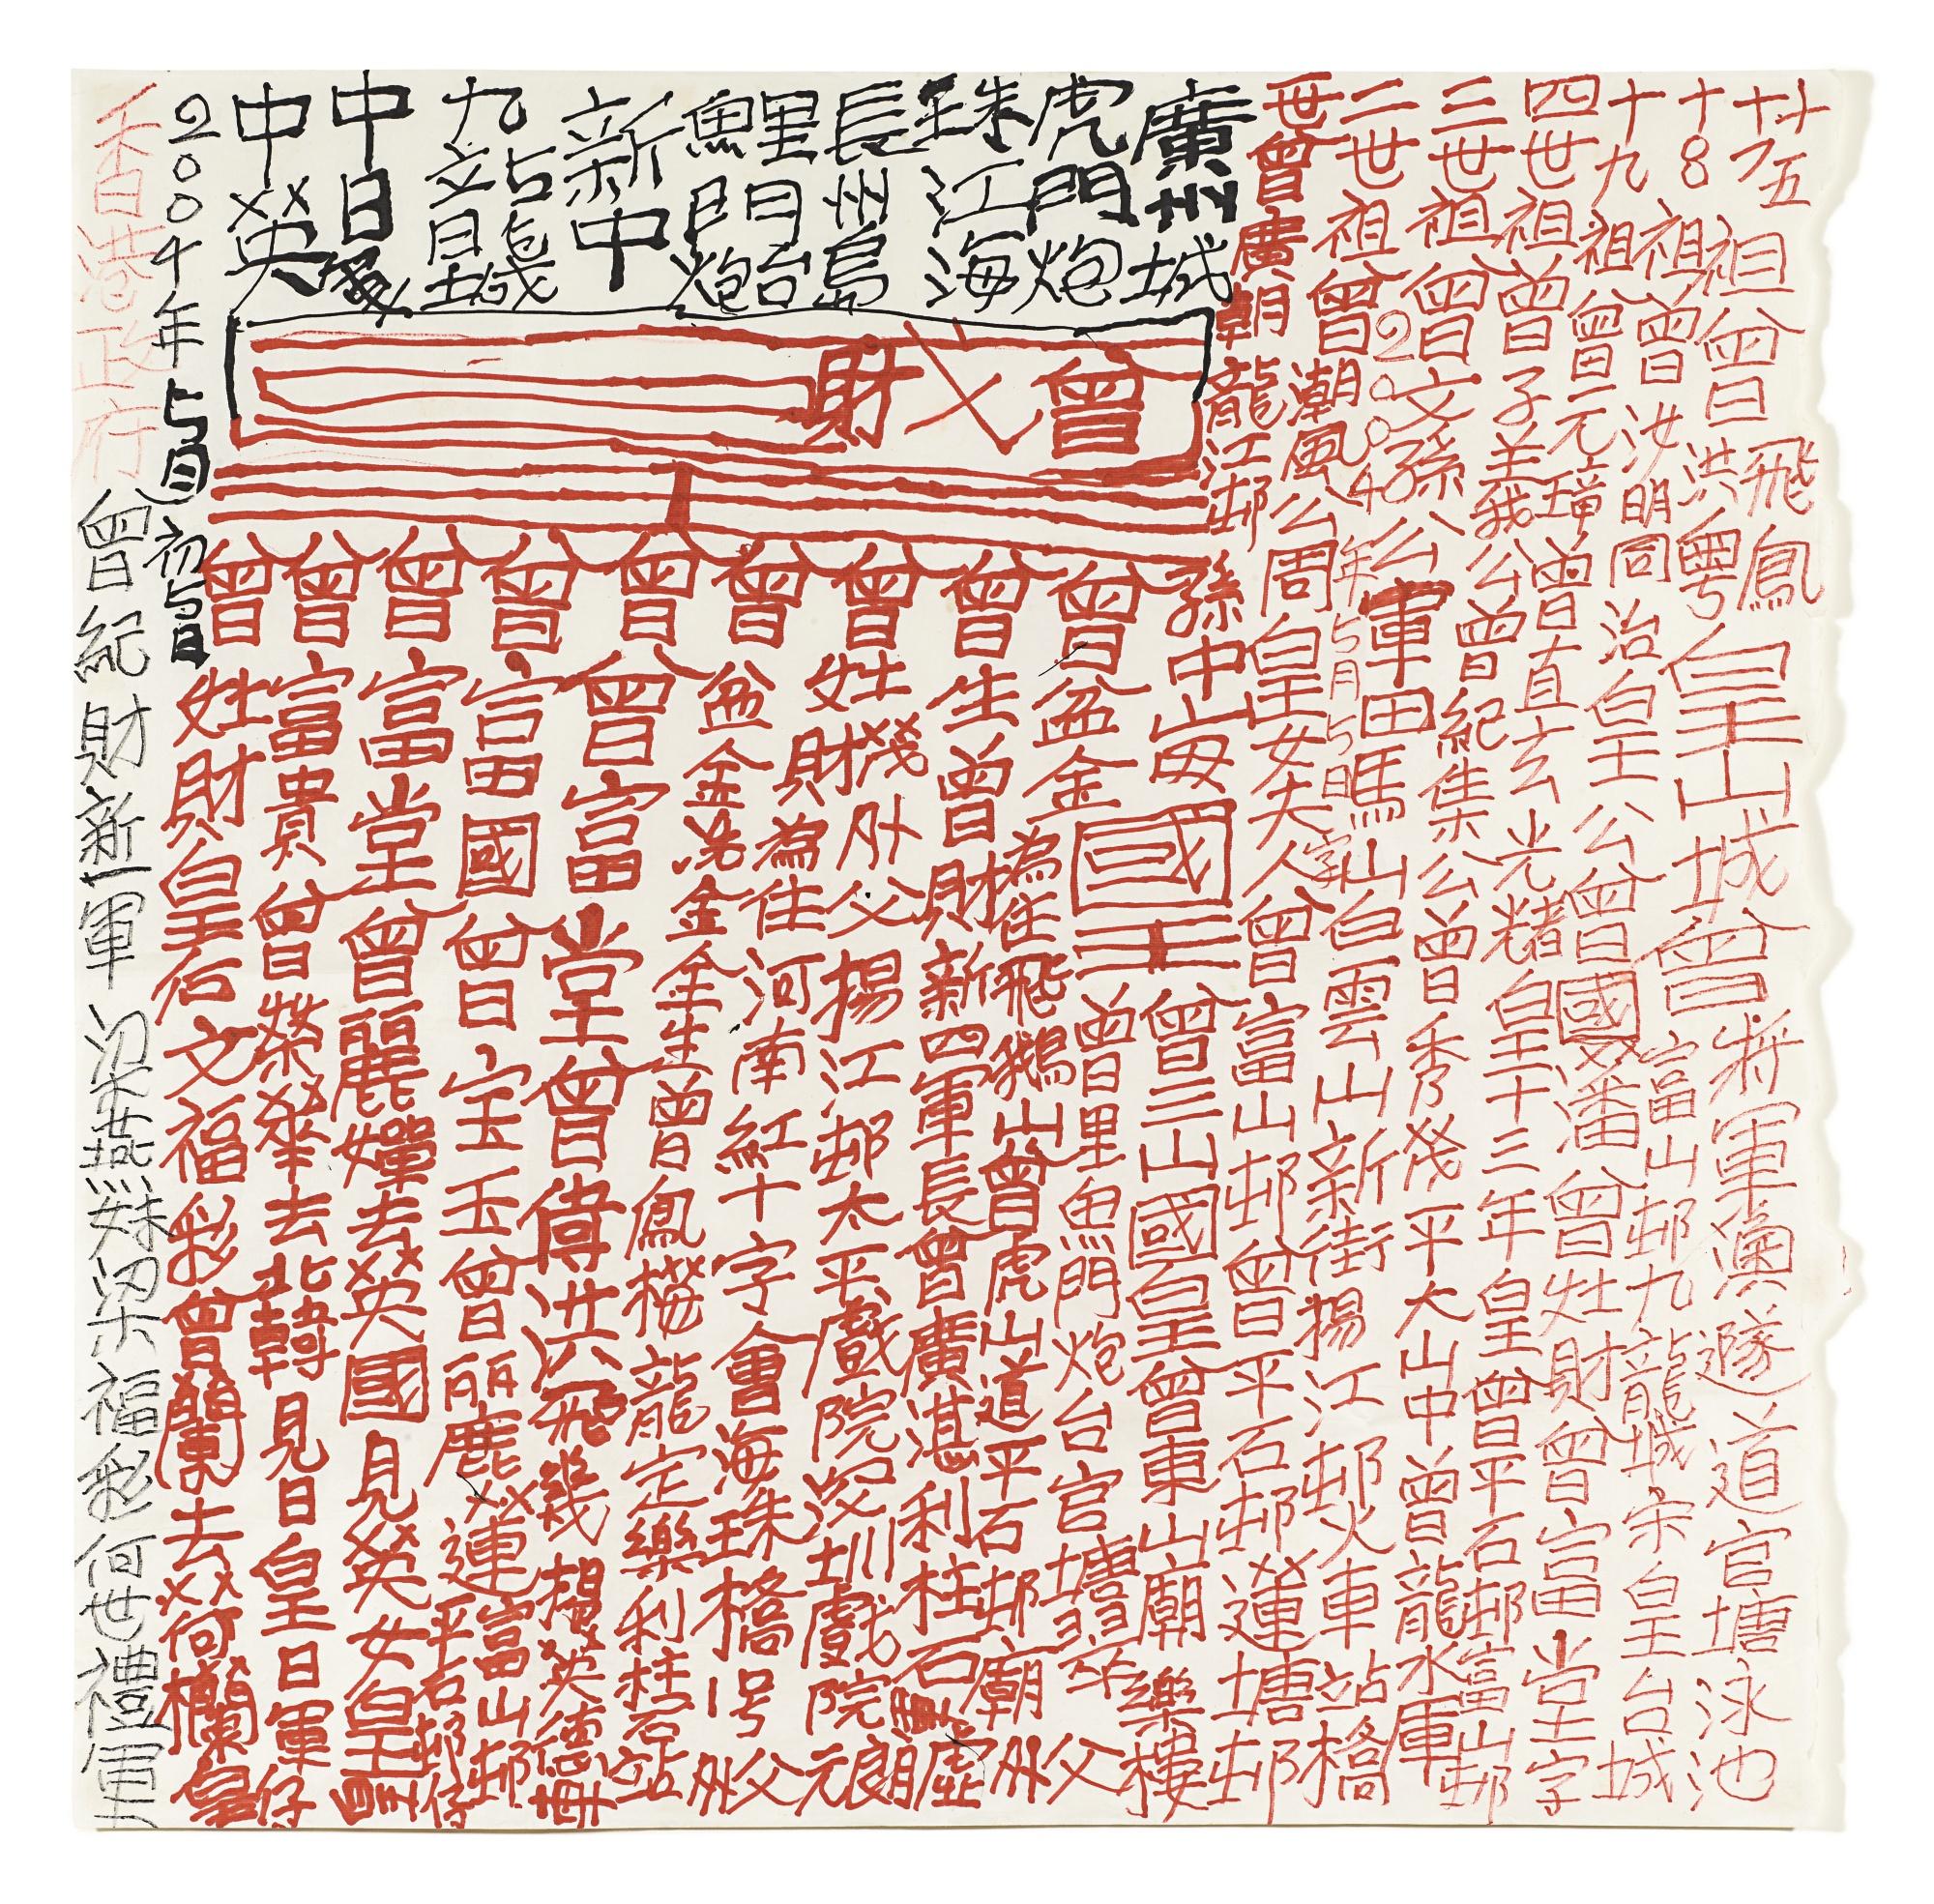 十十八五祖曾曰飛鳳
洪粵皇山城曾將軍澳遂道官塘泳池
十8祖曾汝明同治皇公曾富山邨九龍城宋皇台城
十九祖曾元璋曾直玄光緒皇
曾國潘曾灶財曾富堂字
四世祖曾子羊我公曾紀集公曾秀發平大山中曾龍水軍
皇十三年皇曾平石邨富山邨
三世祖曾文孫公軍田馬山白雲山新街揚江邨火車站橋
2004年5月5日字
二世祖曾潮風公周皇女夫人曾富山邨曾平石邨蓮塘邨
世曾廣朝龍江邨孫中山每國王曾三山國皇曾東山廟樂樓
廣州城
虎門炮
珠江海
長州島
鯉魚門炮台
新中
九龍皇城
中日
中英
曾財
曾盆金為住飛鵝山曾虎山道平石邨廟外父
曾里魚門炮台官塘翠
曾生曾財新四軍長曾廣湛利柱石
曾姓機外父揚江邨太平戲院深圳戲院元朗
財為住河南紅十字會海珠橋1号外父
曾盆金浩金金生曾鳳樓龍定樂利柱石站
曾曾富堂曾偉洪飛機揚英德冊
曾富國曾宝玉曾麗蓮富山邨
曾富堂曾麗嬋去英國見英女皇平石邨仔
曾富貴曾榮華去北韓見日皇日軍仔
曾姓財皇后文福彩曾蘭去何欄皇
2004年5月初5日
香港政府曾紀財新一軍梁燕妹梁福彩何世禮軍